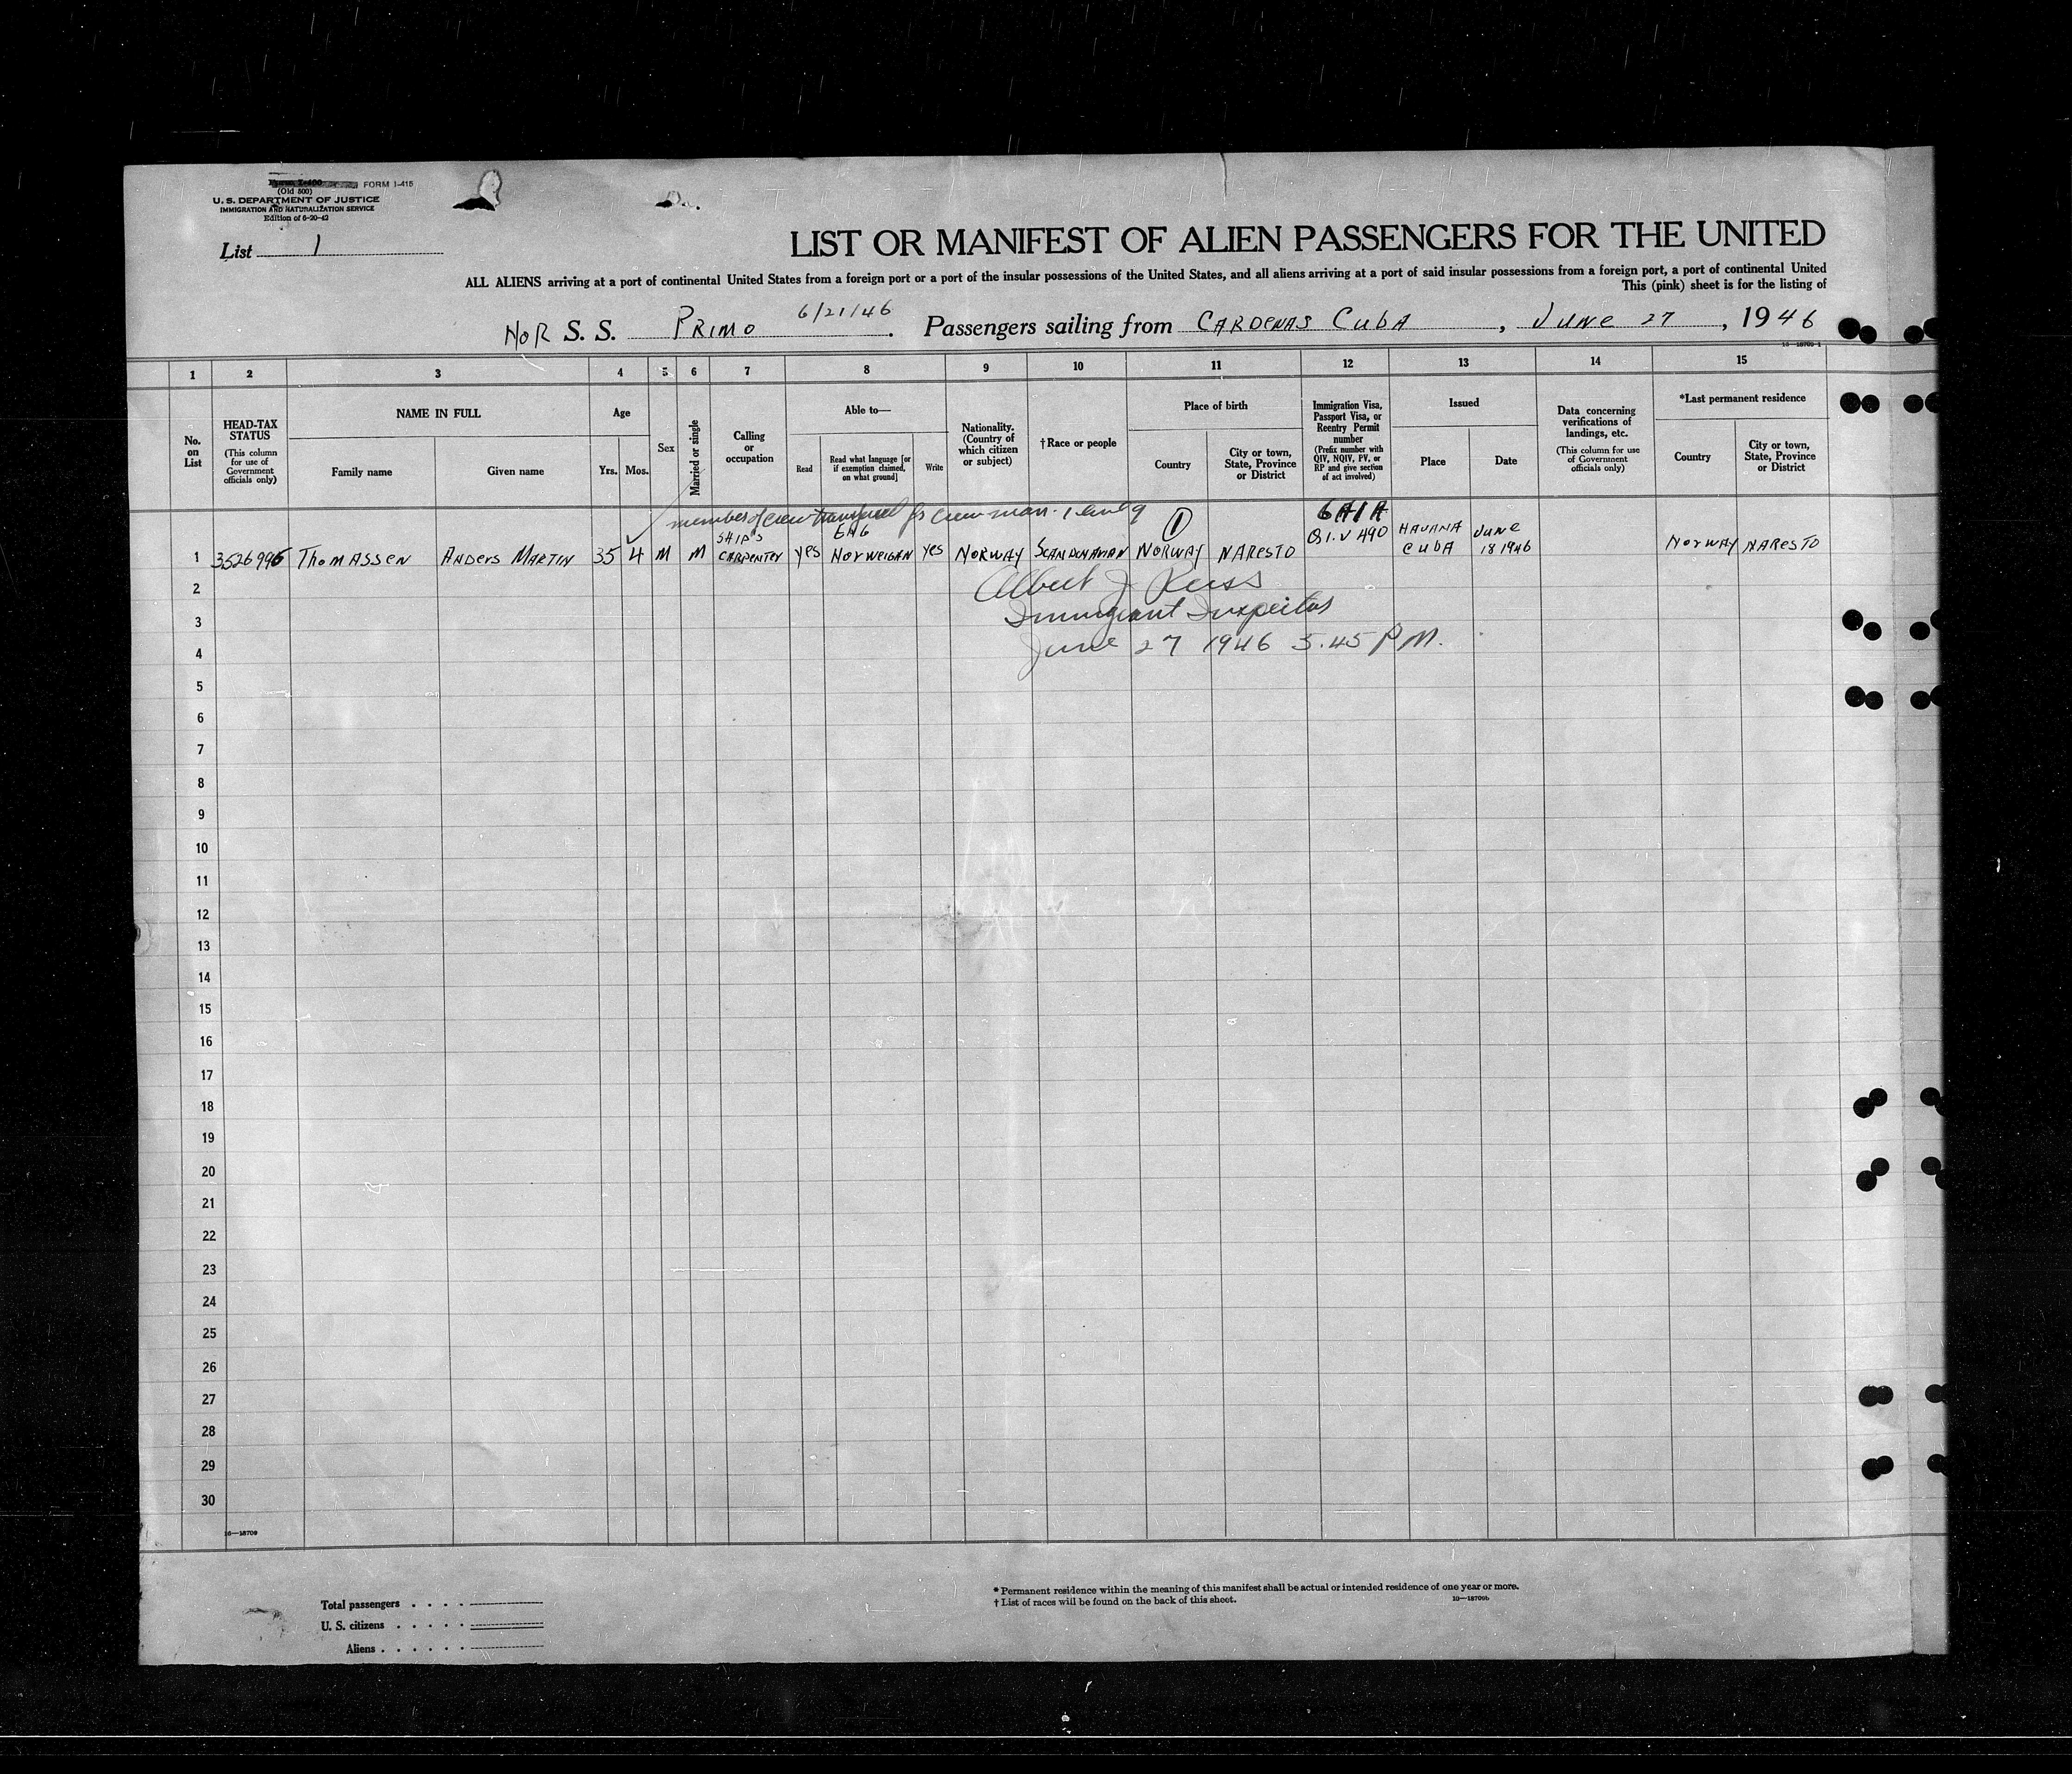 FORM I-415
(Old 500)
U. S. DEPARTMENT OF JUSTICE
IMMIGRATION AND NATURALIZATION SERVICE
Edition of 6-20-42
List 1
LIST OR MANIFEST OF ALIEN PASSENGERS FOR THE UNITED
ALL ALIENS arriving at a port of continental United States from a foreign port or a port of the insular possessions of the United States, and all aliens arriving at a port of said insular possessions from a foreign port, a port of continental United
This (pink) sheet is for the listing of
NOR S. S. PRIMO 6/21/46. Passengers sailing from CARDENAS CUBA, JUNE 27, 1946
1 2 3 4 5 6 7 8 9 10 11 12 13 14 15
No. on List
HEAD-TAX STATUS (This column for use of Government officials only)
NAME IN FULL
Family name Given name
Age
Yrs. Mos.
Sex
Married or single
Calling or occupation
Able to—
Read
Read what language [or if exemption claimed, on what ground]
Write
Nationality. (Country of which citizen or subject)
†Race or people
Place of birth
Country
City or town, State, Province or District
Immigration Visa, Passport Visa, or Reentry Permit number (Prefix number with QIV, NQIV, PV, or RP and give section of act involved)
Issued
Place Date
Data concerning verifications of landings, etc. (This column for use of Government officials only)
*Last permanent residence
Country
City or town, State, Province or District
member of crew
6A1A
1 3526996 THOMASSEN ANDERS MARTIN 35 4 M M SHIP'S CARPENTER YES NORWEIGAN YES NORWAY SCANDINAVIAN NORWAY NARESTO Q.I.V 490 HAVANA CUBA JUNE 18 1946 NORWAY NARESTO
2 Albert J
3 Immigrant Inspector
4 June 27 1946 5.45 P M.
5
6
7
8
9
10
11
12
13
14
15
16
17
18
19
20
21
22
23
24
25
26
27
28
29
30
16—18709
Total passengers . . . .
U. S. citizens . . . . .
Aliens . . . . . .
* Permanent residence within the meaning of this manifest shall be actual or intended residence of one year or more.
† List of races will be found on the back of this sheet.